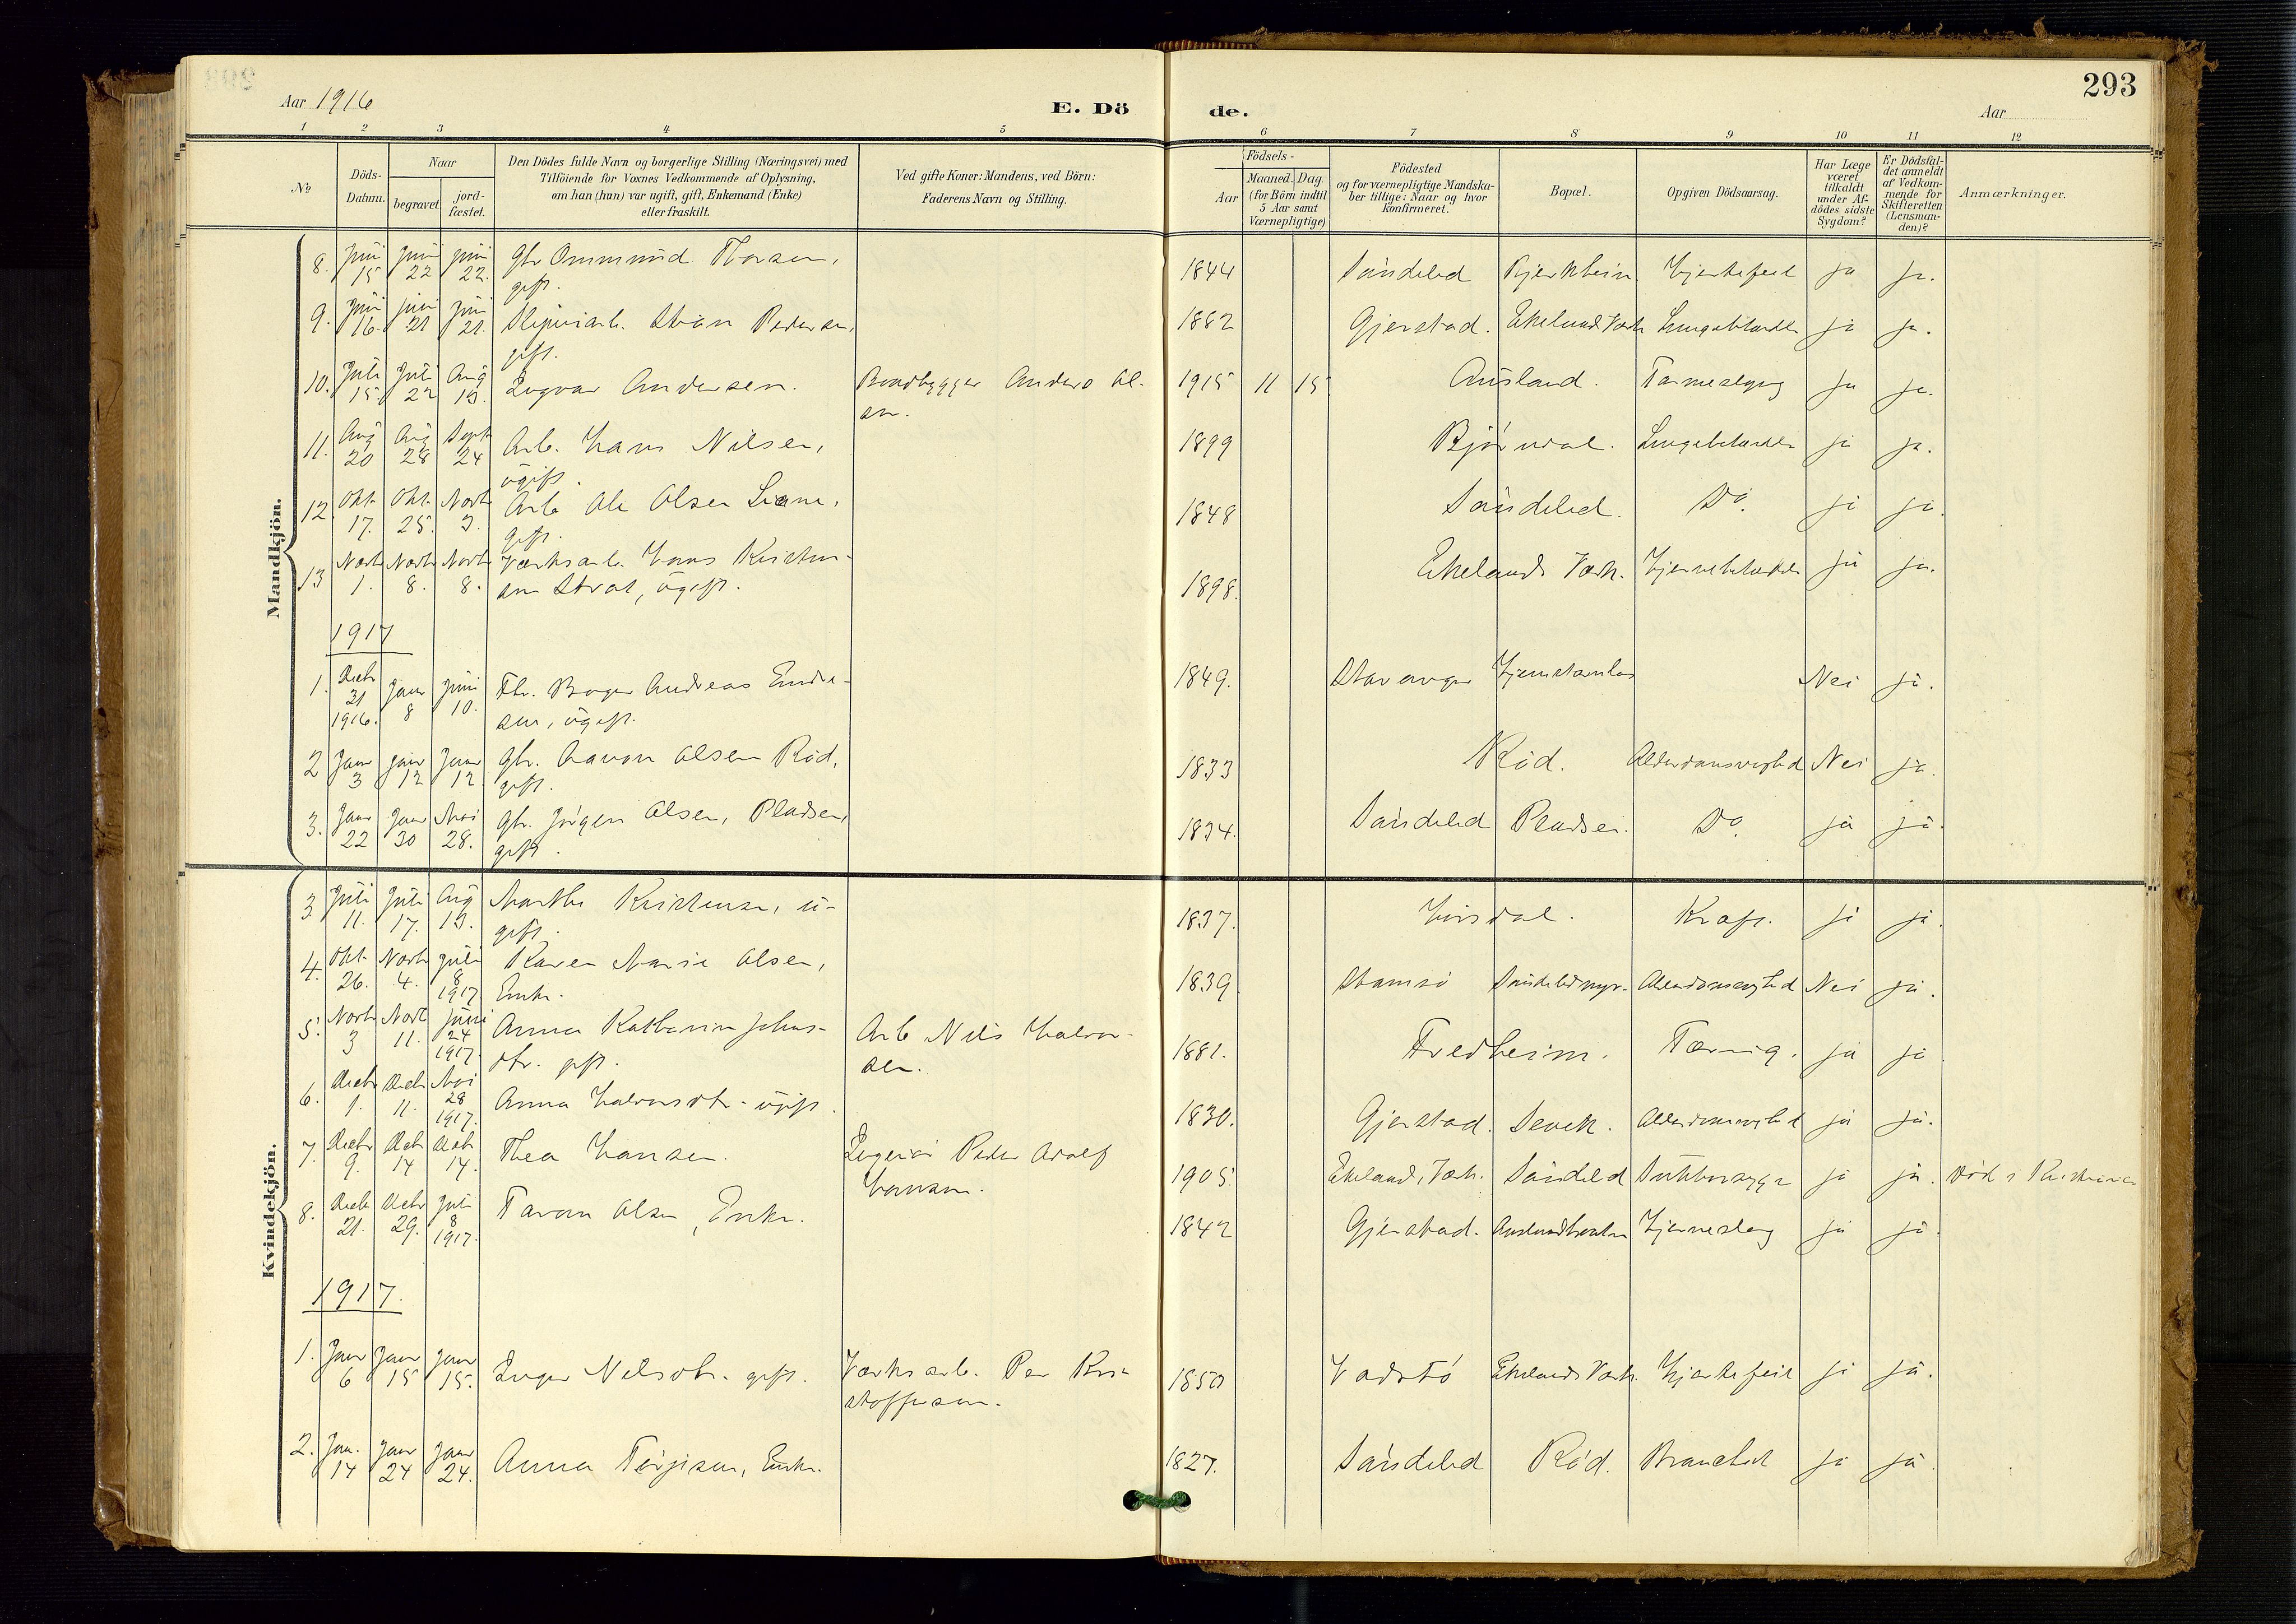 293
Aar 1916
E. Dö
de.
Aar
1 2 3 4 5 6 7 8 9 10 11 12
No
Döds-
Datum.
Naar
begravet
jord-
fæstet.
Den Dödes fulde Navn og borgerlige Stilling (Næringsvei) med
Tilföiende for Voxnes Vedkommende af Oplysning,
om han (hun) var ugift, gift, Enkemand (Enke)
eller fraskilt.
Ved gifte Koner: Mandens, ved Börn:
Faderens Navn og Stilling.
Födsels-
Aar
Maaned. Dag.
(for Börn indtil
5 Aar samt
Værnepligtige)
Födested
og for værnepligtige Mandska-
ber tillige: Naar og hvor
konfirmeret.
Bopæl.
Opgiven Dödsaarsag.
Har Læge
været
tilkaldt
under Af-
dödes sidste
Sygdom?
Er Dödsfal-
det anmeldt
af Vedkom-
mende for
Skifteretten
(Lensman-
den)?
Anmærkninger.
Mandkjön.
8. Juni 15 Juni 22 Juni 22. Gbr Ommund Thorsen, 1844 Söndeled Bjerkheim Hjertefeil ja ja.
gift.
9. Juni 16. Juni 21 Juni 21. Sliperiarb. Stian Pedersen, 1882 Gjerstad. Ekelands Værk Lungebetændelse ja ja.
gift.
10. Juli 15. Juli 22 Aug 13. Ingvar Andersen. Baadbygger Anders Ol- 1915 11 15 Ausland. Tarmeslyng ja ja.
sen.
11. Aug 20 Aug 28 Sept 24 Arb. Hans Nilsen, 1899 Bjørndal. Lungebetændelse ja ja.
ugift.
12. Okt. 17. Okt. 25. Novb 3. Arb Ole Olsen Liane, 1848 Söndeled. Do. ja ja.
gift.
13 Novb 1. Novb 8. Novb 8. Værksarb. Hans Kristen- 1898. Ekelands Værk. Hjernebetændelse ja ja.
sen Strat, ugift.
1917
1. Decbr 31 1916. Janr 8 Juni 10. Fhv. Bager Andreas Endre- 1849. Stavanger Hjemstavnløs Nei ja.
sen, ugift.
2 Janr 3 Janr 12 Janr 12. Gbr. Aanon Olsen Röd, 1833 Röd. Alderdomssvaghed Nei ja.
gift.
3. Janr 22 Janr 30 Mai 28. Gbr. Jörgen Olsen, Pladsen, 1834. Söndeled Pladsen. Do. ja ja.
gift.
Kvindekjön.
3 Juli 11. Juli 17. Aug 13. Marthe Kristensen, u- 1837. Kræft. ja ja.
gift.
4. Okt. 26. Novb 4. Juli 8 1917 Karen Marie Olsen, 1839 Stamsö Alderdomssvaghed Nei ja.
Enke.
5. Novb 3 Novb 11. Juni 24 1917. Anna Katharina Johns- Arb Nils Halvor- 1881. Fredheim. Tæring. ja ja
dtr. gift. sen.
6. Decbr 1. Decb 11. Mai 28 1917. Anna Halvorsdtr. ugift. 1830. Gjerstad. Alderdomssvaghed ja ja.
7. Decbr 9. Decb 14 Decb 14. Thea Hansen. Ingeniör Peder Adolf 1905. Ekelands Værk. Söndeled Sukkersyge ja ja. Död i Kristiania
Hansen.
8. Decb 21. Decbr 29. Juli 8 1917. Taran Olsen, Enke. 1842 Gjerstad. Hjerneslag ja ja.
1917.
1. Janr 6 Janr 15 Janr 15. Inger Nilsdtr. gift. Værksarb. Per Kri- 1850 Vadstö Ekelands Værk. Hjertefeil ja ja.
stoffersen.
2. Jan. 14 Janr 24 Janr 24. Anna Terjesen, Enke. 1827. Söndeled Röd. Bronchit ja ja.